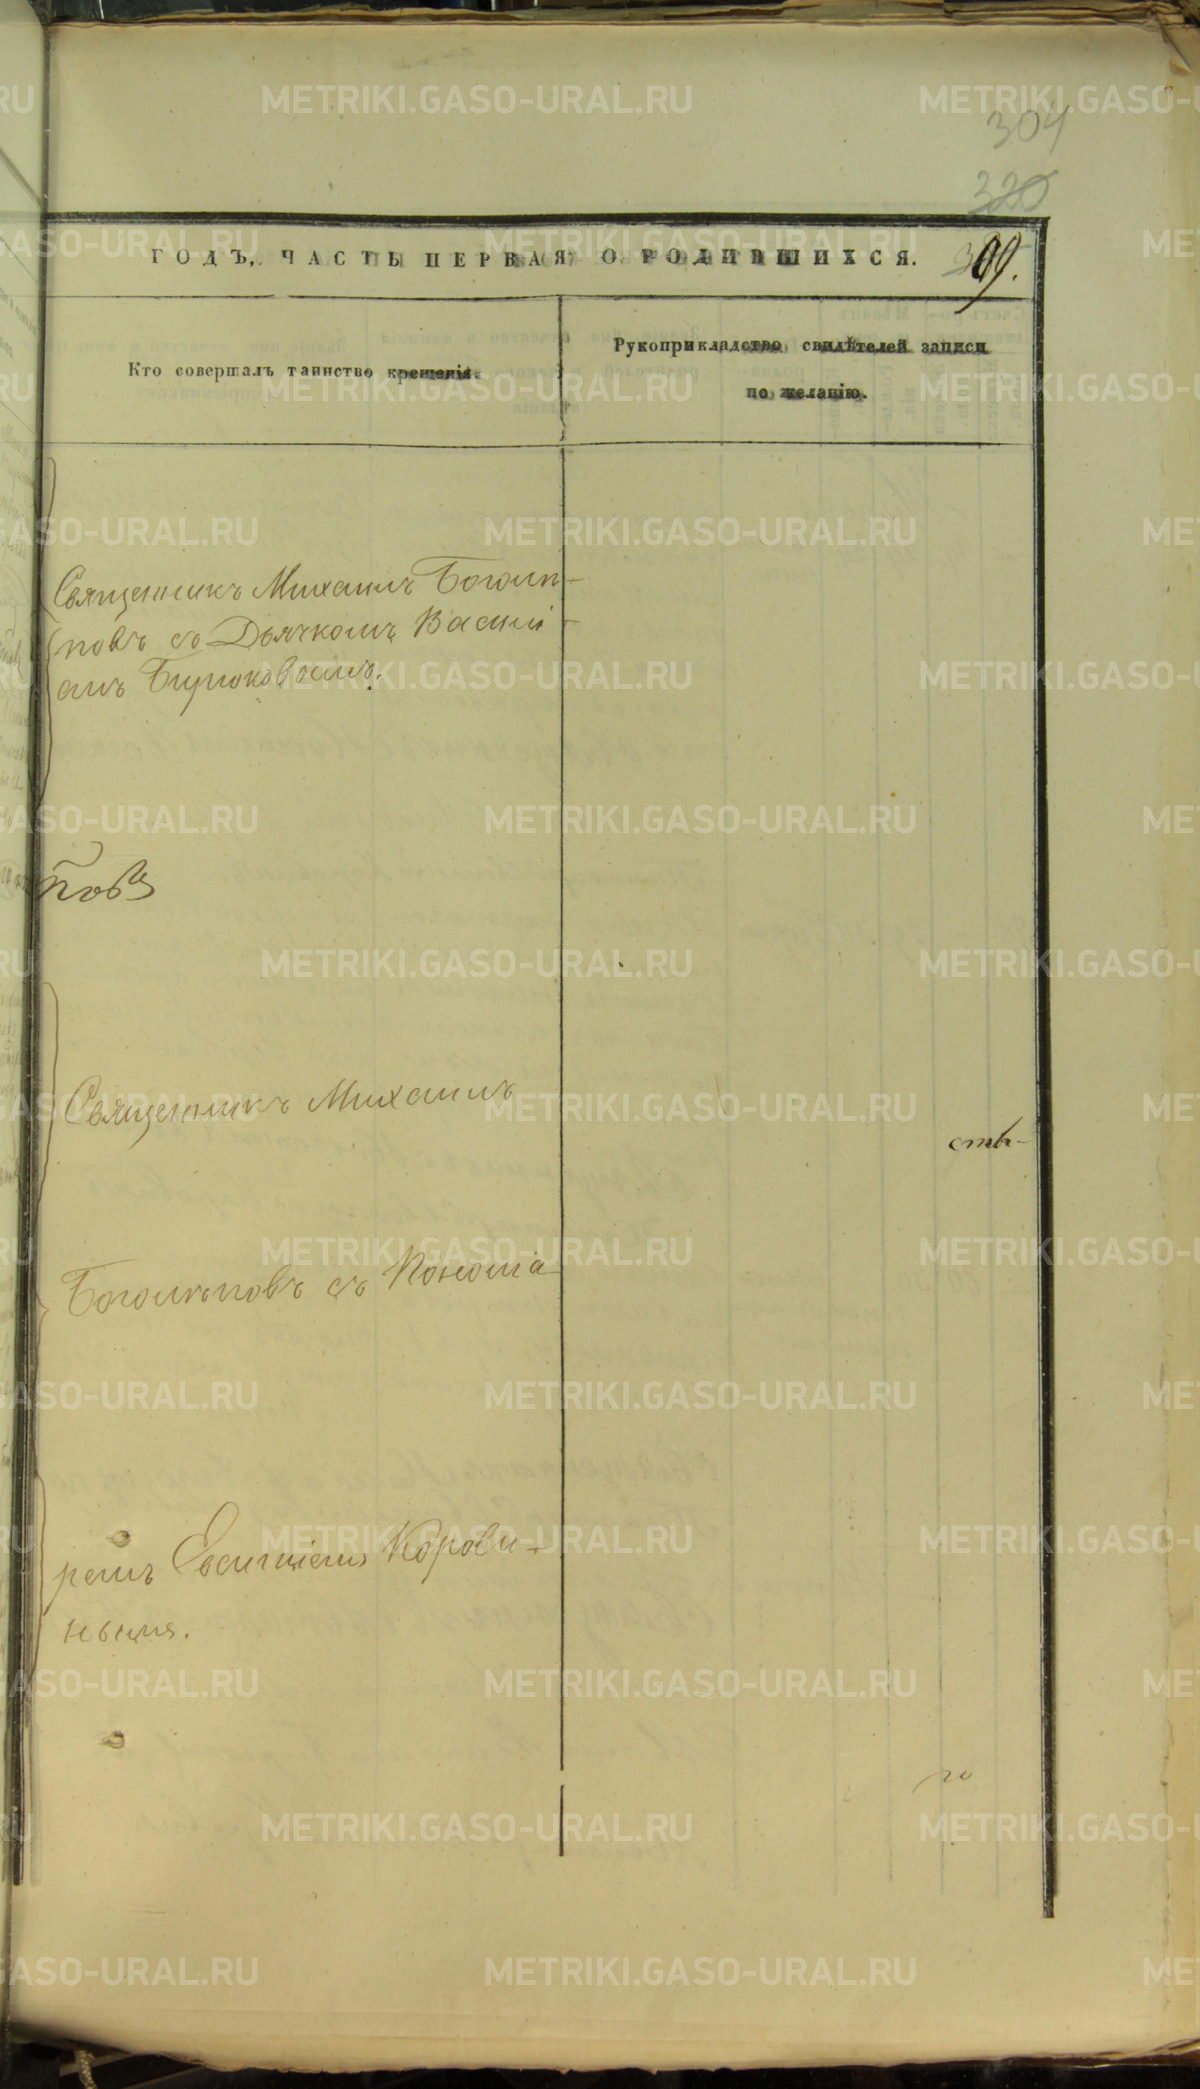 304
320
ГОДЪ, ЧАСТЬ ПЕРВАЯ О РОДИВШИХСЯ. 309.
Кто совершалъ таинство крещенія.
Рукоприкладство свидѣтелей записи
по желанію.
Священникъ Михаилъ Боголѣ-
повъ съ Дьячкомъ Василі-
емъ Бирюковымъ.
повъ
Священникъ Михаилъ
сть-
Боголѣповъ съ Понома-
ремъ Евсигніемъ Корови-
нымъ.
го
METRIKI.GASO-URAL.RU